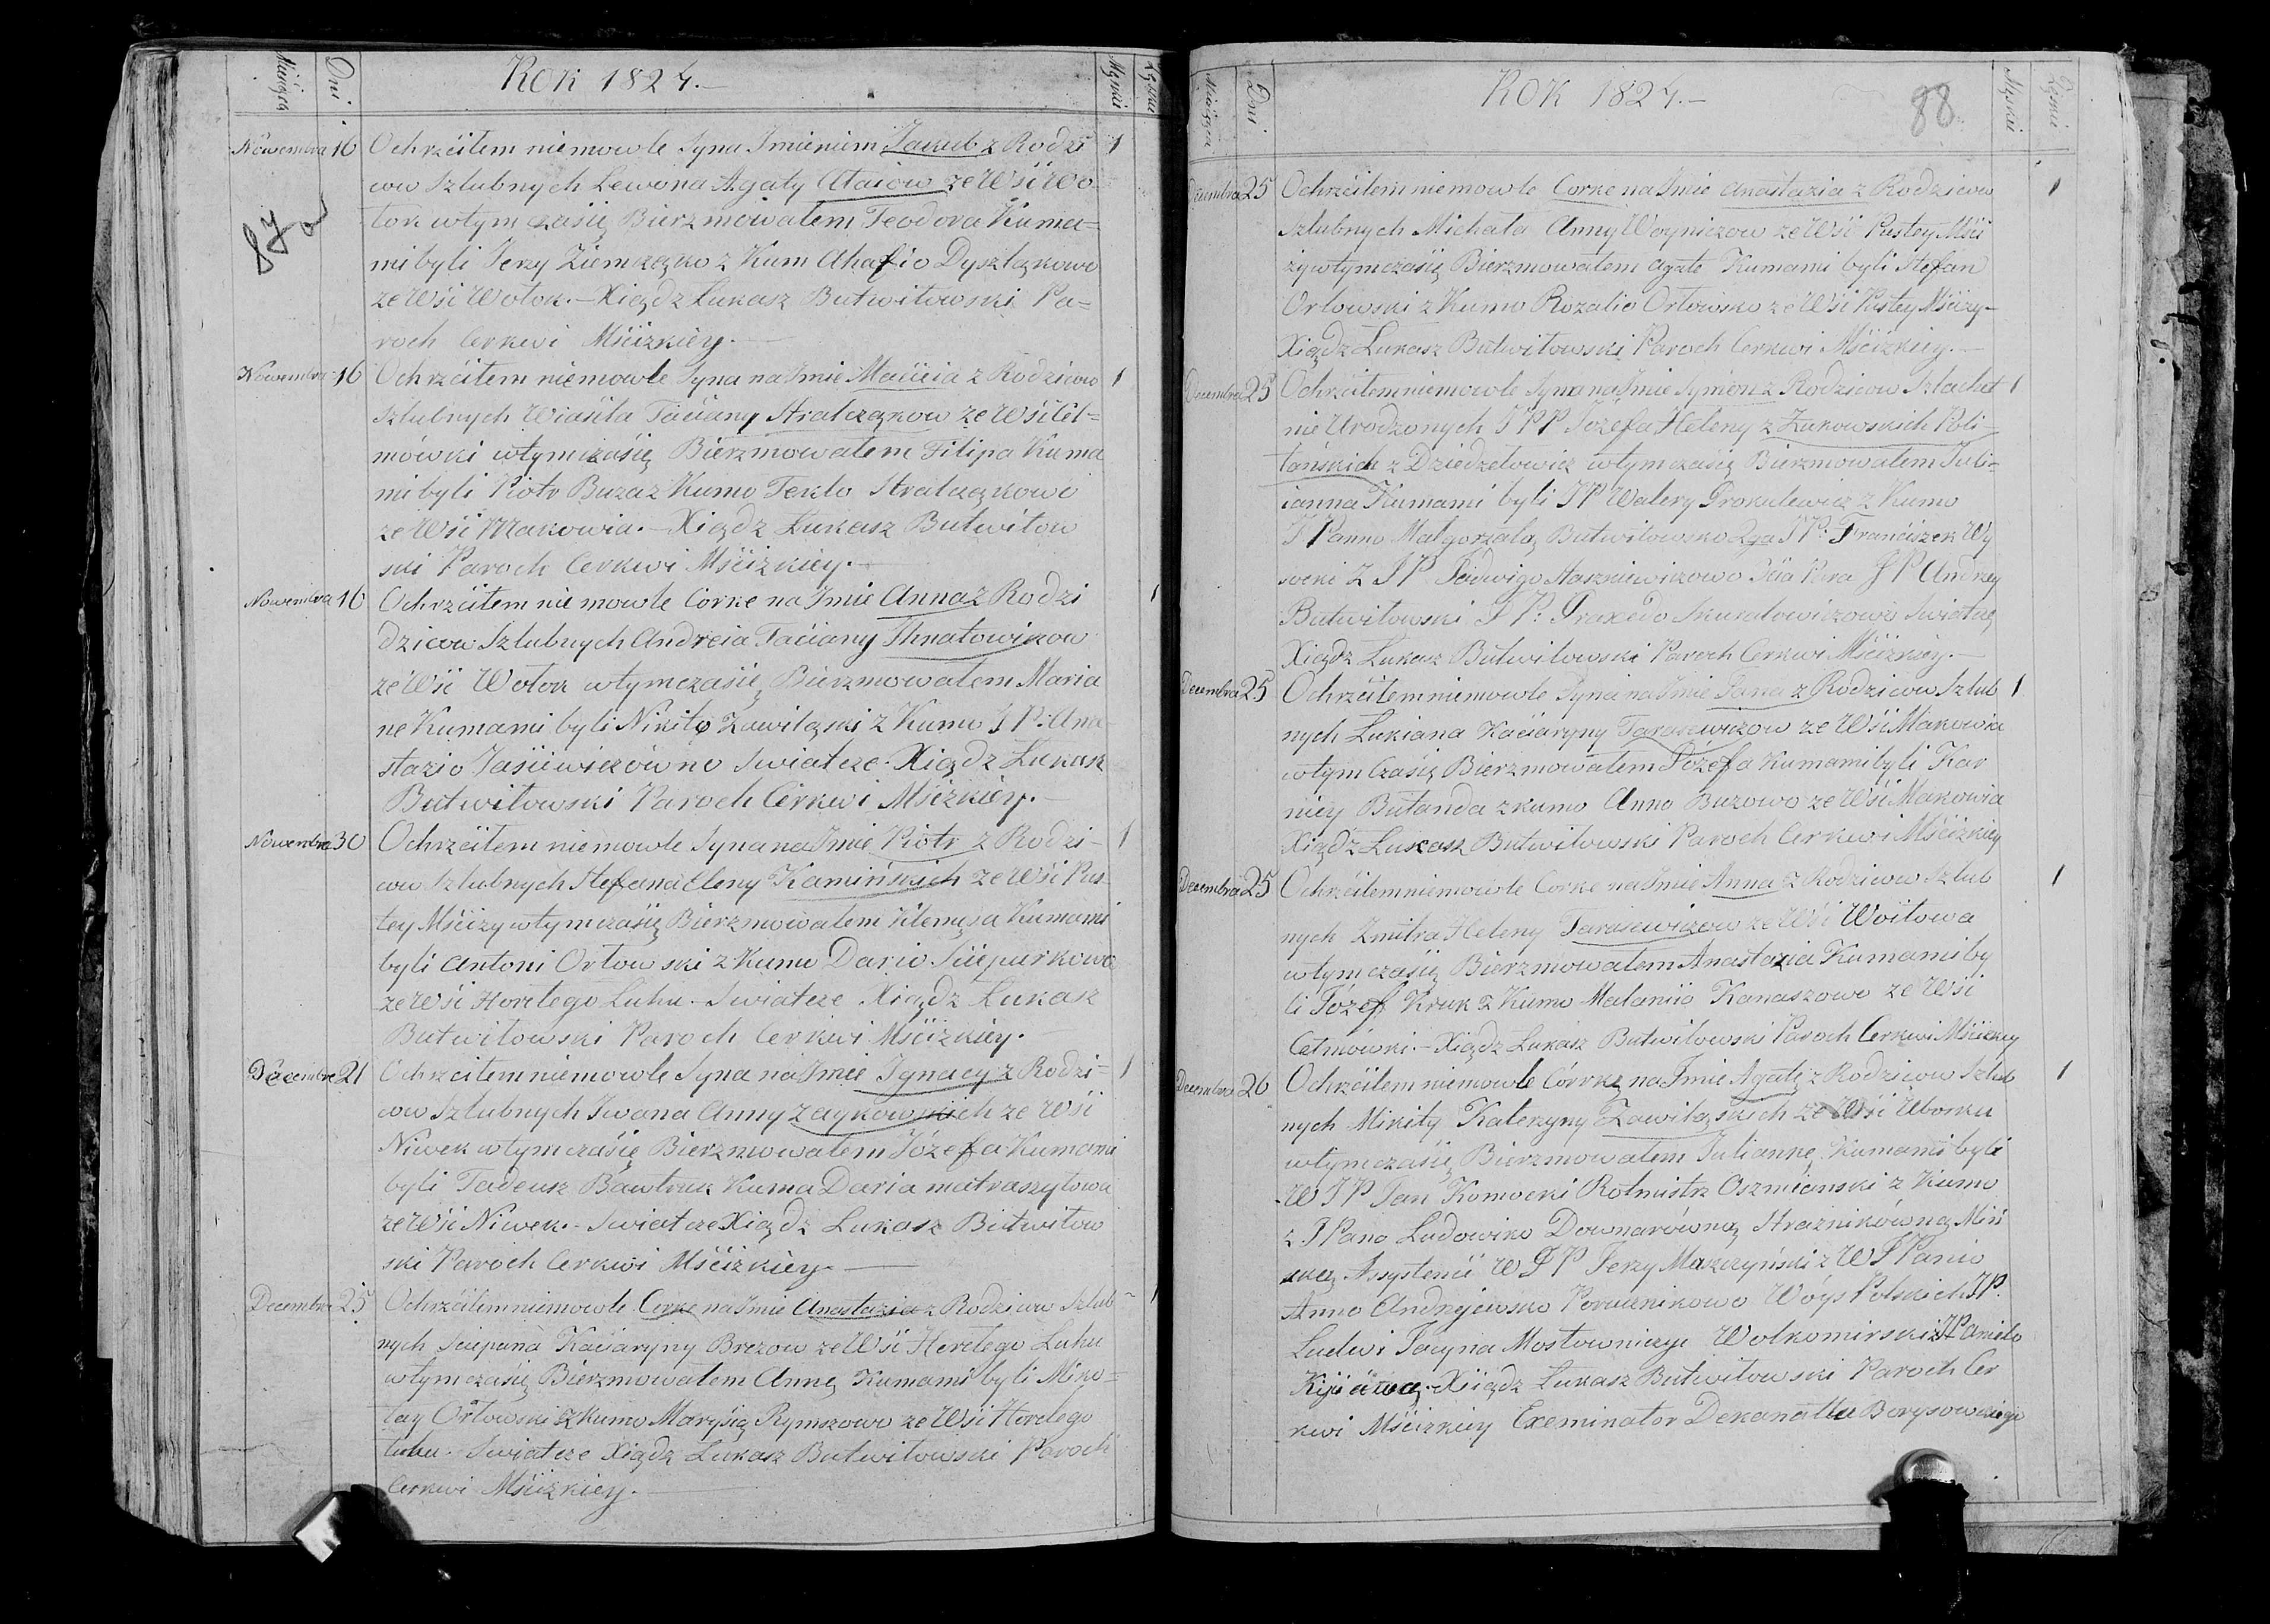 Miesiąca
Dni
ROK 1824.—
Męskie
Żeńskie
Nowembra 16 Ochrzcilem niemowle Syna Imieniem Jakub z Rodzi 1
cow Szlubnych Lewona Agaty Ataiow ze Wsi Wo-
87
tok wtym czasie Bierzmowalem Teodora Kuma=
mi byli Jerzy z Kum Ahafio Dyszląkowo
ze Wsi Wolok.— Xiądz Lukasz Butwilowski Pa=
roch Cerkwi Mścizkiey.—
Nowembra 16 Ochrzcilem niemowle Syna na Imie Macieia z Rodzicow 1
Szlubnych Wiasila Taciany Stralcząkow ze Wsi Cet=
mówki wtym czasie Bierzmowalem Filipa Kuma
mi byli Piotr Buza z Kumo Teklo Stralczązkowo
ze Wsi Makowia.— Xiądz Lukasz Butwilow
ski Paroch Cerkwi Mścizkiey.—
Nowembra 16 Ochrzcilem niemowle Corke na Imie Anna z Rodzi 1
dzicow Szlubnych Andreia Taciany Ihnatowiczow
ze Wsi Wolok wtym czasie Bierzmowalem Maria
ne Kumami byli Nikito Zawiląski z Kumo J P: Ana
stazio Jasiewiczówno Swiatcze. Xiądz Lukasz
Butwilowski Paroch Cerkwi Mścizkiey.—
Nowembra 30 Ochrzcilem niemowle Syna na Imie Piotr z Rodzi- 1
cow Szlubnych Stefana Eleny Kamińskich ze Wsi Pus-
tey Mścizy wtym czasie Bierzmowalem Klemęsa Kumami
byli Antoni Orlowski z Kumo Dario Sciepurkowo
ze Wsi Horelego Luhu.— Swiatcze Xiądz Lukasz
Butwilowski Paroch Cerkwi Mścizkiey.
Decembra 21 Ochrzcilem niemowle Syna na Imie Ignacy z Rodzi= 1
cow Szlubnych Iwana Anny Zaykowskich ze Wsi
Niwek wtym czasie Bierzmowalem Józefa Kumami
byli Tadeusz Bawtruk Kuma Daria matraszylowa
ze Wsi Niwek.— Swiatcze Xiądz Lukasz Butwilow
ski Paroch Cerkwi Mścizkiey.—
Decembra 25 Ochrzcilem niemowle Corke na Imie Anastazia z Rodzicow Szlub= 1
nych Sciepana Kaciaryny Brezow ze Wsi Horelego Luhu
wtym czasie Bierzmowalem Annę Kumami byli Miko=
lay Orlowski z Kumo Marysią Rymszowo ze Wsi Horelego
Luhu. Swiatcze Xiądz Lukasz Butwilowski Paroch
Cerkwi Mścizkiey.—
Miesiąca
Dni
ROK 1824.—
88
Męskie
Żeńskie
Decembra 25 Ochrzcilem niemowle Corke na Imie Anastazia z Rodzicow 1
Szlubnych Michala Anny Woyniczow ze Wsi Pustey Mści
zy wtym czasie Bierzmowalem Agate Kumami byli Stefan
Orlowski z Kumo Rozalio Orlowsko ze Wsi Pustey Mścizy—
Xiądz Lukasz Butwilowski Paroch Cerkwi Mścizkiey.—
Decembra 25 Ochrzcilem niemowle Syna na Imie Symon z Rodzicow Szlachet 1
nie Urodzonych J P P Józefa Heleny z Zukowskich Poli-
tańskich z Dziedzelowicz wtym czasie Bierzmowalem Juli=
ianna Kumami byli J P Walery Prokulewicz z Kumo
J Panno Malgorzatą Butwilowsko 2ga J P: Franciszek Wy
socki z J P Jadwigo Staszkiewiczowo 3cia Para J P Andrzey
Butwilowski J P: Praxedo Skuratowiczowo Swiatczą
Xiądz Lukasz Butwilowski Paroch Cerkwi Mścizkiey.—
Decembra 25 Ochrzcilem niemowle Syna na Imie Jana z Rodzicow Szlub 1
nych Lukiana Kaciaryny Tarasewiczow ze Wsi Makowia
wtym czasie Bierzmowalem Józefa Kumami byli Kar
niey Butanda z kumo Anno Buzowo ze Wsi Makowia
Xiądz Lukasz Butwilowski Paroch Cerkwi Mścizkiey
Decembra 25 Ochrzcilem niemowle Corke na Imie Anna z Rodzicow Szlub 1
nych Zmitra Heleny Tarasewiczow ze Wsi Woitowa
wtym czasie Bierzmowalem Anastazia Kumami by
li Józef Kruk z Kumo Malanio Kanaszowo ze Wsi
Cetmówki.— Xiądz Lukasz Butwilowski Paroch Cerkwi Mścizkiey
Decembra 26 Ochrzcilem niemowle Córrkę na Imie Agatę z Rodzicow Szlub 1
nych Mikity Katerzyny Zawiląskich ze Wsi Uborku
wtym czasie Bierzmowalem Juliannę Kumami byli
W J P Jan Komocki Rotmistrz Oszmianski z Kumo
z J Pano Ludowiko Downarówną Strażnikówną Miń
ską Assystencii W J P Jerzy Maszczyński z W J Panio
Anno Andrzejewsko Porucznikowo Wóys Polskich J P.
Ludwi Jacyna Mostowniczy Wolkomirski z J P Anielo
Xiądz Lukasz Butwilowski Paroch Cer
kwi Mścizkiey Exeminator Dekanattu Borysowskiego